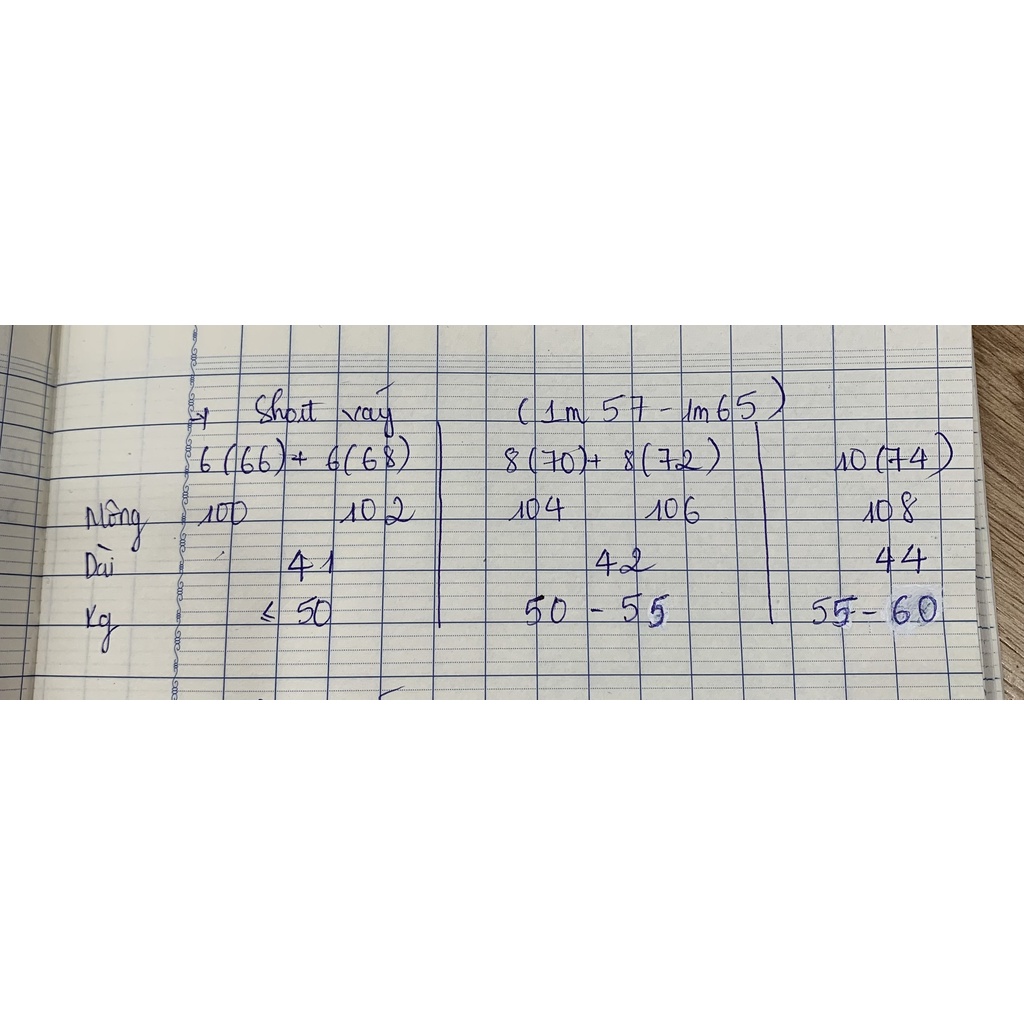 + Short váy (1m 57 - 1m65)
6 (66) + 6(68) 8(70)+ 8(72) 10(74)
Mông 100 102 104 106 108
Dài 41 42 44
Kg ≤ 50 50 - 55 55 - 60